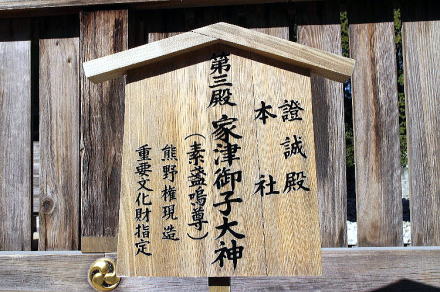 證誠殿
本社
第三殿 家津御子大神
(素盞嗚尊)
熊野権現造
重要文化財指定